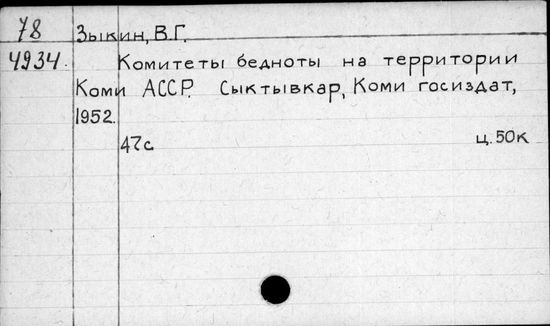 78
Зыкин, В.Г.
4934.
Комитеты бедноты на территории
Коми АССР. Сыктывкар, Коми госиздат,
1952.
47с ц. 50к